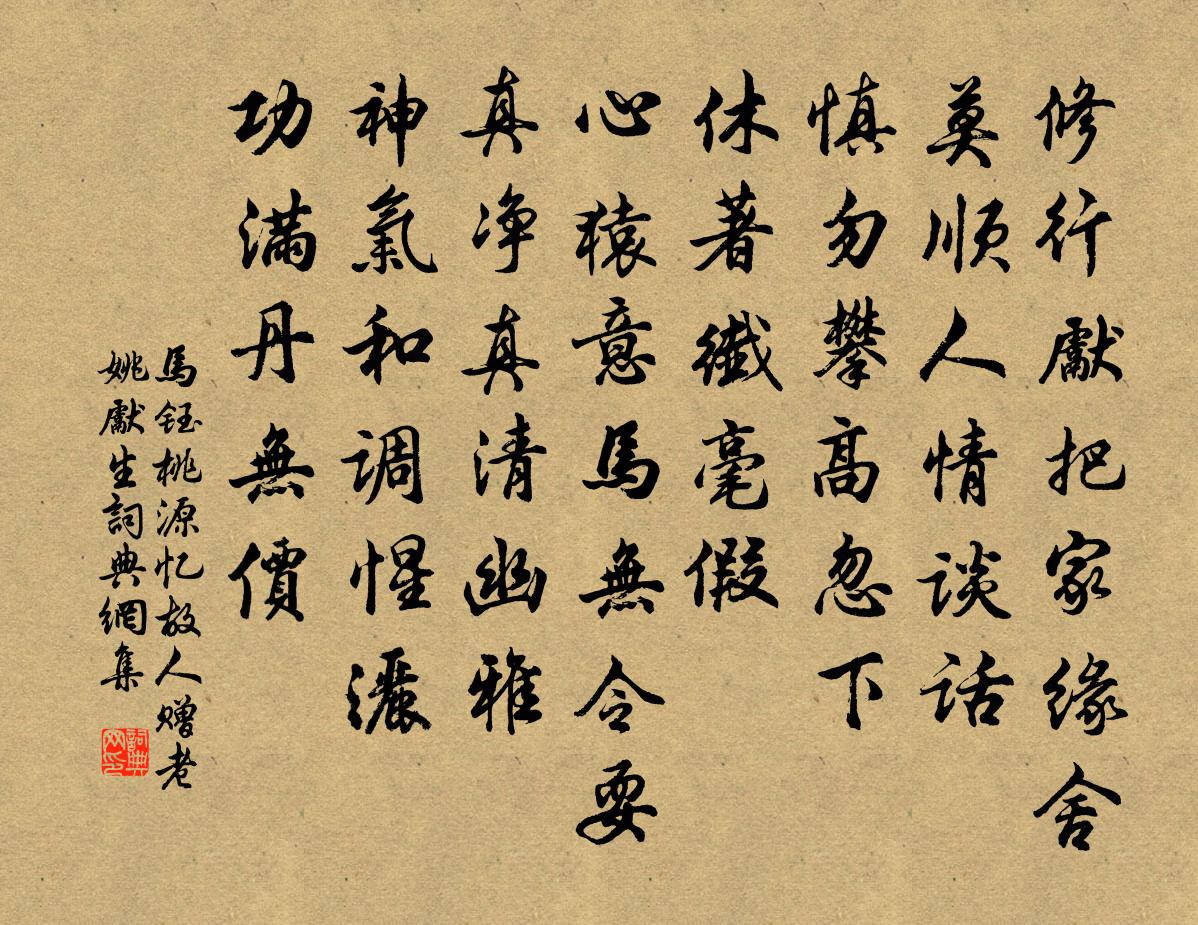 修行獻把家緣舍
莫順人情談话
慎勿攀高忽下
休著纖毫假
心猿意馬無令耍
真净真清幽雅
神氣和调惺灑
功滿丹無價
馬钰桃源忆故人赠老
姚獻生詞典網集
詞典网印